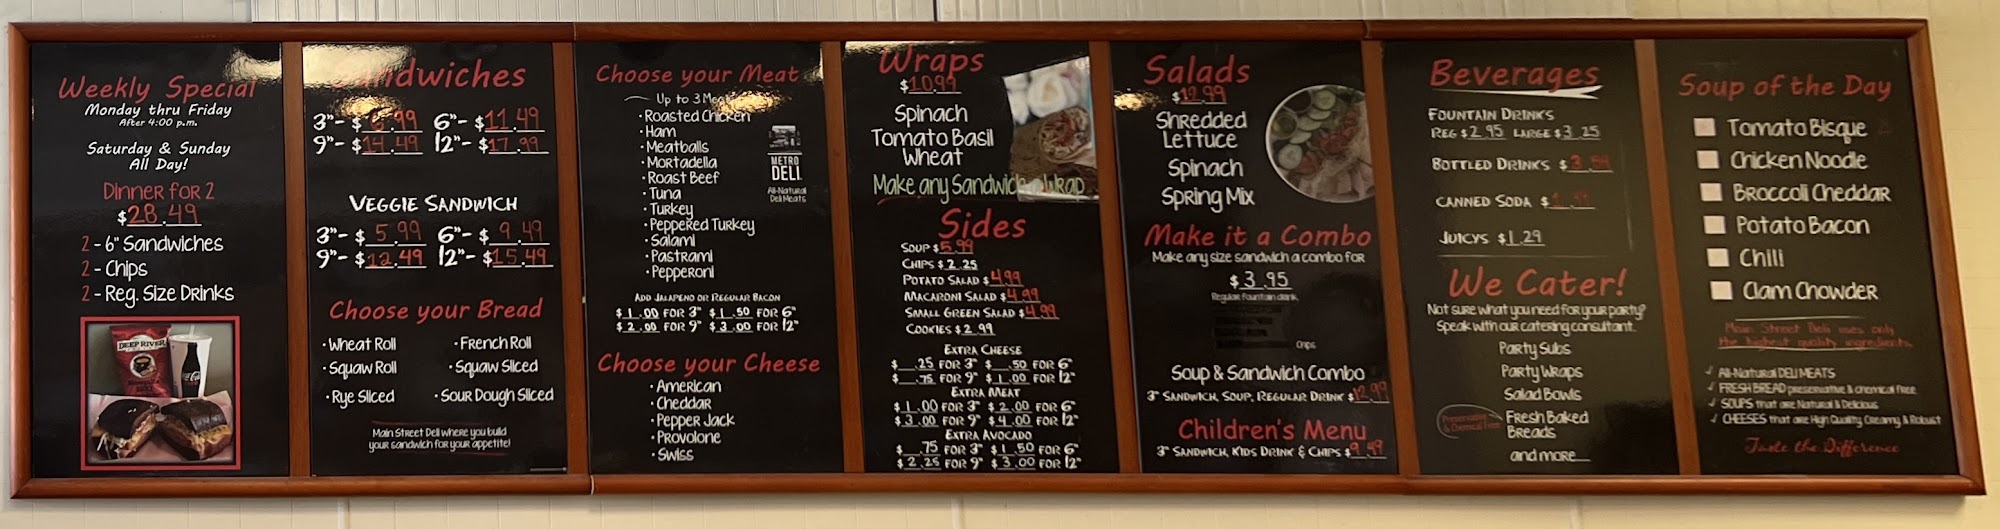 Weekly Special
Monday thru Friday
After 4:00 p.m.
Saturday & Sunday
All Day!
Dinner for 2
$28.49
2 - 6" Sandwiches
2 - Chips
2 - Reg. Size Drinks
DEEP RIVER
Sandwiches
3" - $6.99 6" - $11.49
9" - $14.49 12" - $17.99
Veggie Sandwich
3" - $5.99 6" - $9.49
9" - $12.49 12" - $15.49
Choose your Bread
• Wheat Roll • French Roll
• Squaw Roll • Squaw Sliced
• Rye Sliced • Sour Dough Sliced
Main Street Deli where you build
your sandwich for your appetite!
Choose your Meat
Up to 3 Meats
• Roasted Chicken
• Ham
• Meatballs
• Mortadella
• Roast Beef
• Tuna
• Turkey
• Peppered Turkey
• Salami
• Pastrami
• Pepperoni
METRO
DELI
All-Natural
Deli Meats
Add Jalapeno or Regular Bacon
$1.00 for 3" $1.50 for 6"
$2.00 for 9" $3.00 for 12"
Choose your Cheese
• American
• Cheddar
• Pepper Jack
• Provolone
• Swiss
Wraps
$10.99
Spinach
Tomato Basil
Wheat
Make any Sandwich a Wrap
Sides
Soup $5.99
Chips $2.25
Potato Salad $4.99
Macaroni Salad $4.99
Small Green Salad $4.99
Cookies $2.99
Extra Cheese
$.25 for 3" $.50 for 6"
$.75 for 9" $1.00 for 12"
Extra Meat
$1.00 for 3" $2.00 for 6"
$3.00 for 9" $4.00 for 12"
Extra Avocado
$.75 for 3" $1.50 for 6"
$2.25 for 9" $3.00 for 12"
Salads
$12.99
Shredded
Lettuce
Spinach
Spring Mix
Make it a Combo
Make any size sandwich a combo for
$3.95
Regular fountain drink
Chips
Soup & Sandwich Combo
3" Sandwich, Soup, Regular Drink $12.99
Children's Menu
3" Sandwich, Kids Drink & Chips $9.49
Beverages
Fountain Drinks
Reg $2.95 Large $3.25
Bottled Drinks $3.
Canned Soda $1.
Juicys $1.29
We Cater!
Not sure what you need for your party?
Speak with our catering consultant.
Party Subs
Party Wraps
Salad Bowls
Preservative
& Chemical Free
Fresh Baked
Breads
and more
Soup of the Day
Tomato Bisque
Chicken Noodle
Broccoli Cheddar
Potato Bacon
Chili
Clam Chowder
Main Street Deli uses only
the highest quality ingredients
✓ All-Natural DELI MEATS
✓ FRESH BREAD preservative & chemical free
✓ SOUPS that are Natural & Delicious
✓ CHEESES that are High Quality Creamy & Robust
Taste the Difference